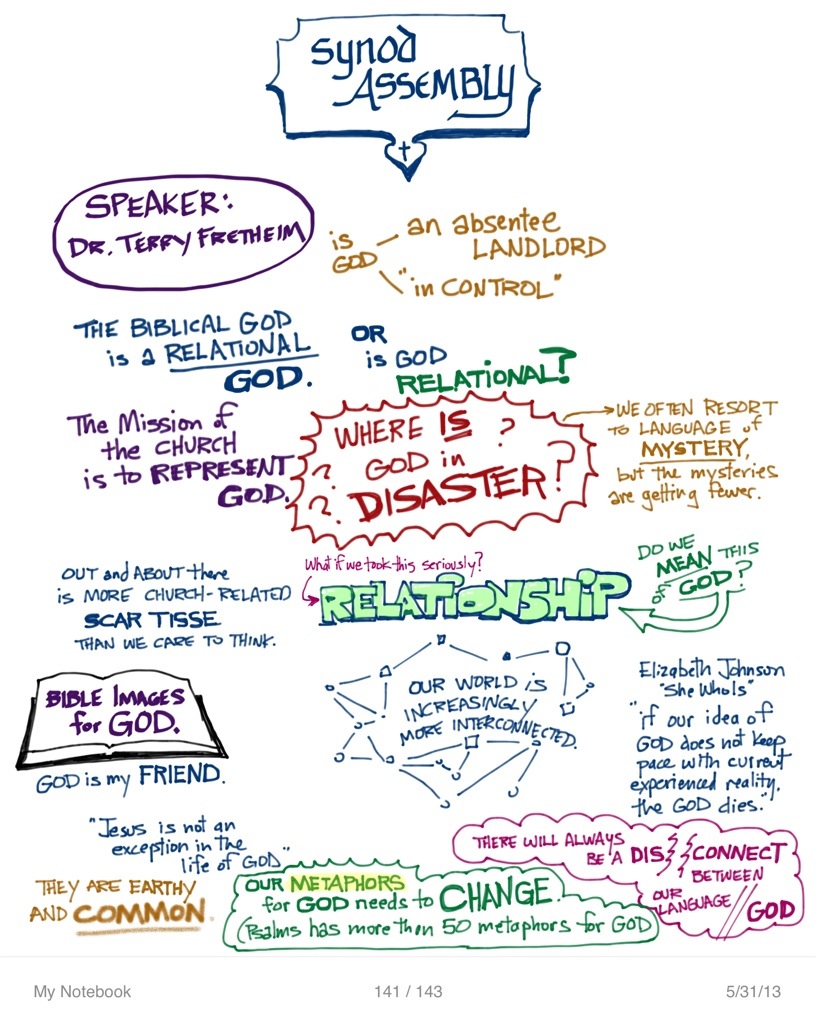 Synod
ASSEMBLY
SPEAKER:
DR. TERRY FRETHEIM
is
GOD
an absentee
LANDLORD
"in CONTROL"
THE BIBLICAL GOD
is a RELATIONAL
GOD.
OR
is GOD
RELATIONAL?
The Mission of
the CHURCH
is to REPRESENT
GOD.
WHERE IS ?
? GOD in ?
? DISASTER!
WE OFTEN RESORT
TO LANGUAGE of
MYSTERY,
but the mysteries
are getting fewer.
OUT and ABOUT there
is MORE CHURCH-RELATED
SCAR TISSE
THAN WE CARE TO THINK.
What if we took this seriously?
RELATIONSHIP
DO WE
MEAN THIS
OF GOD?
BIBLE IMAGES
for GOD.
GOD is my FRIEND.
OUR WORLD is
INCREASINGLY
MORE INTERCONNECTED.
Elizabeth Johnson
"She WhoIs"
"if our idea of
GOD does not keep
pace with current
experienced reality,
the GOD dies."
"Jesus is not an
exception in the
life of GOD."
THEY ARE EARTHY
AND COMMON.
OUR METAPHORS
for GOD needs to CHANGE.
(Psalms has more then 50 metaphors for GOD
THERE WILL ALWAYS
BE A DIS CONNECT
BETWEEN
OUR
LANGUAGE // GOD
My Notebook
141 / 143
5/31/13